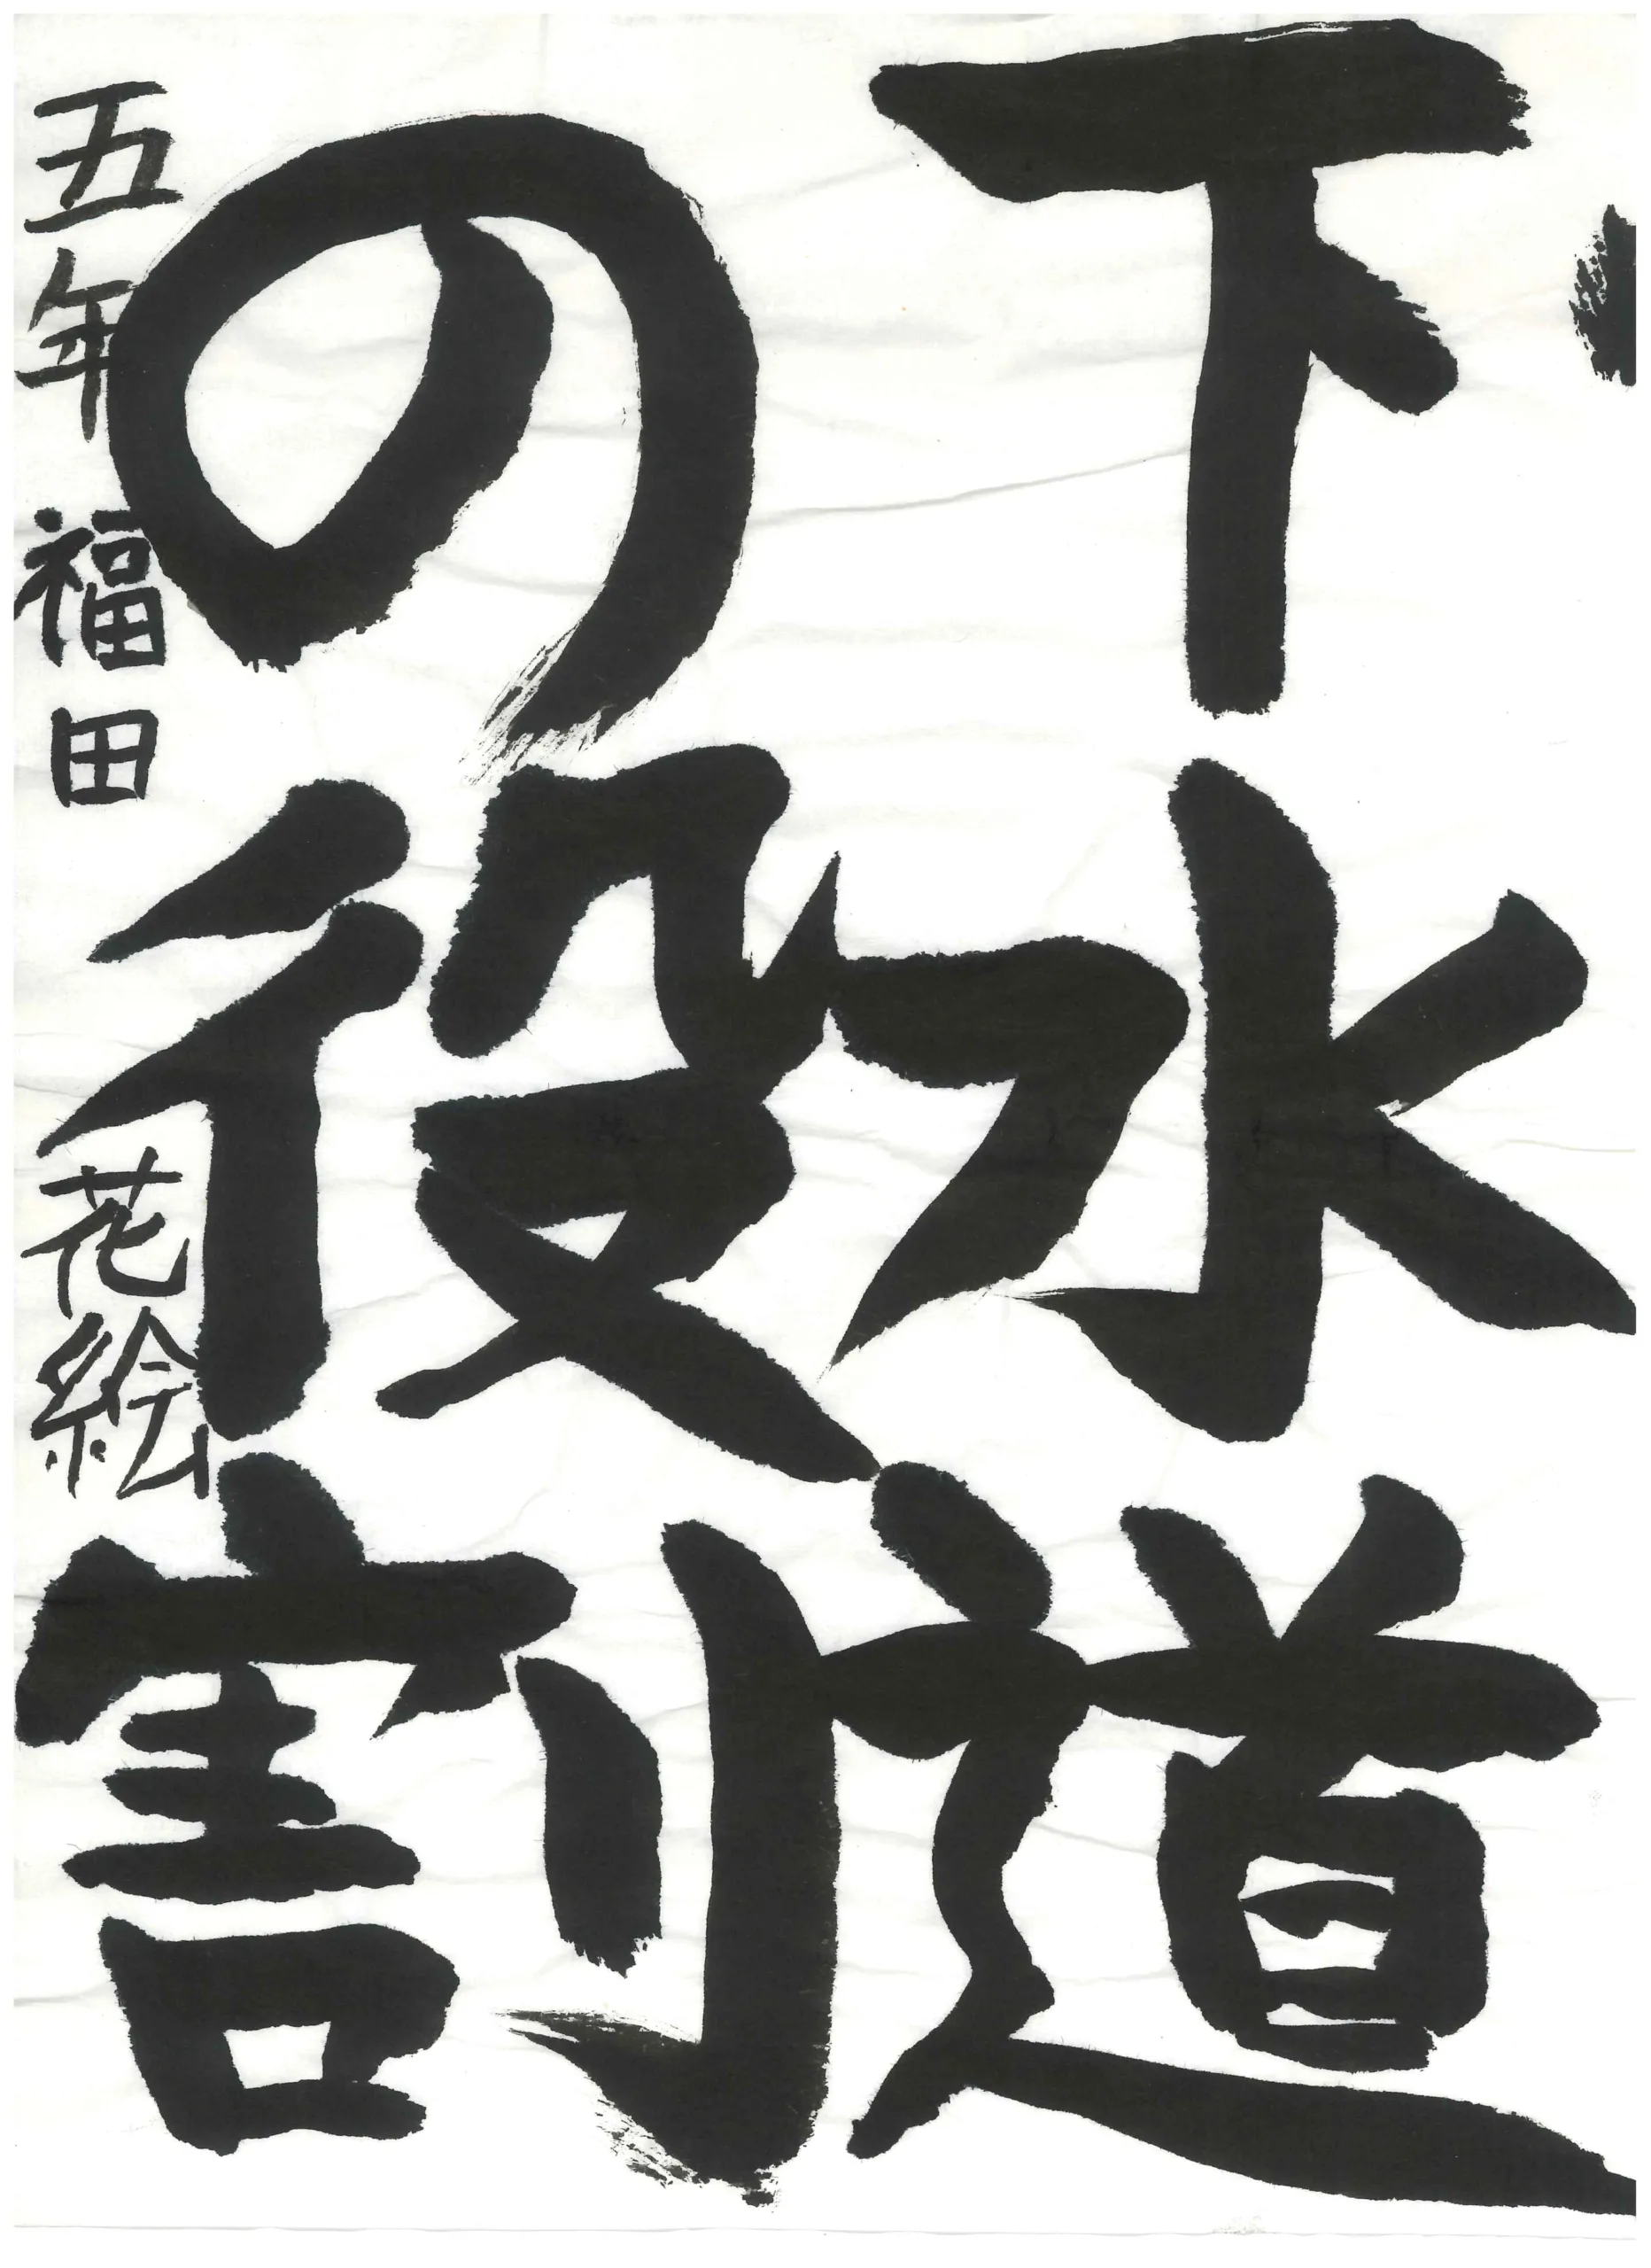 下水道
の役割
五年 福田 花絵